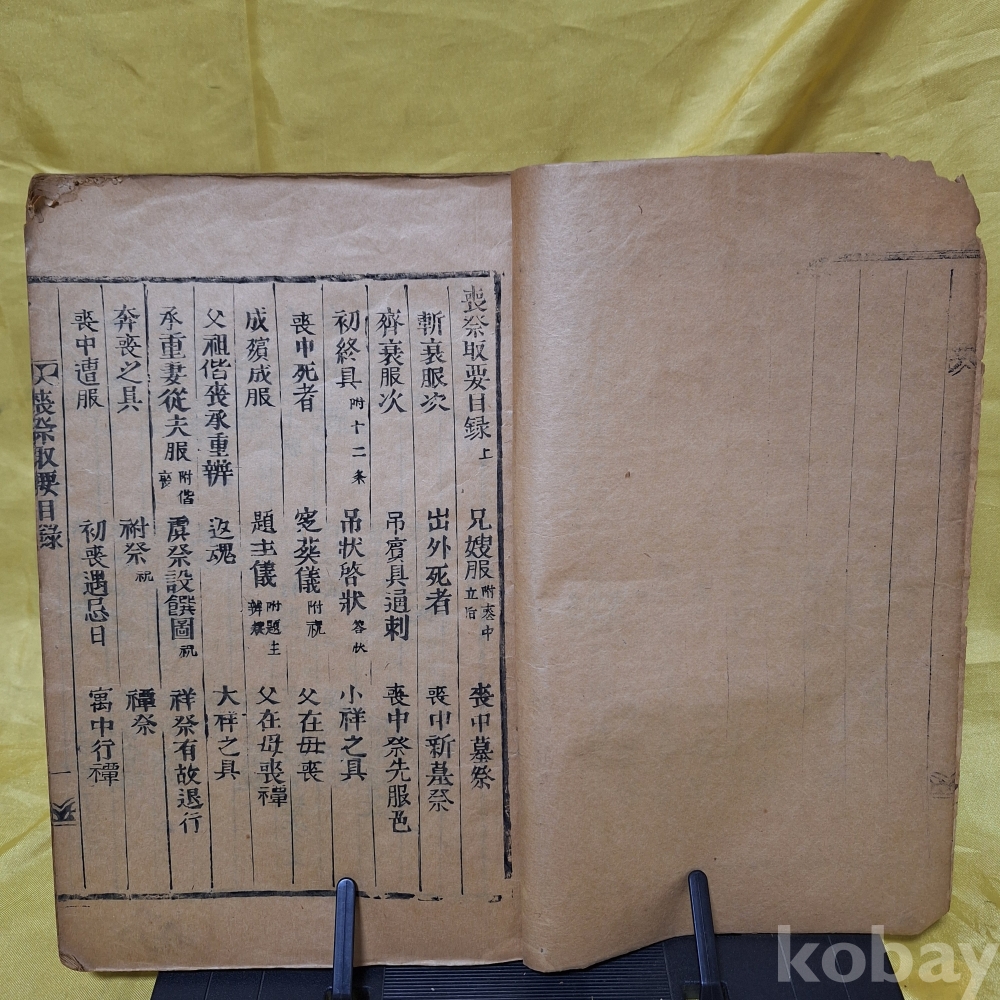 喪祭取要目録 上 兄嫂服 附喪中立后 喪中墓祭
斬衰服次 出外死者 喪中新墓祭
齊衰服次 吊賓具通刺 喪中祭先服色
初終具 附十二条 吊状啓状 答状 小祥之具
喪中死者 窆葬儀 附祝 父在母喪
成殯成服 題主儀 附題主 父在母喪禫
父祖偕喪承重辨 返魂 大祥之具
承重妻從夫服 附偕喪 虞祭設饌圖 祝 祥祭有故退行
奔喪之具 祔祭 祝 禫祭
喪中遭服 初喪遇忌日 寓中行禫
喪祭取要目録 一
kobay